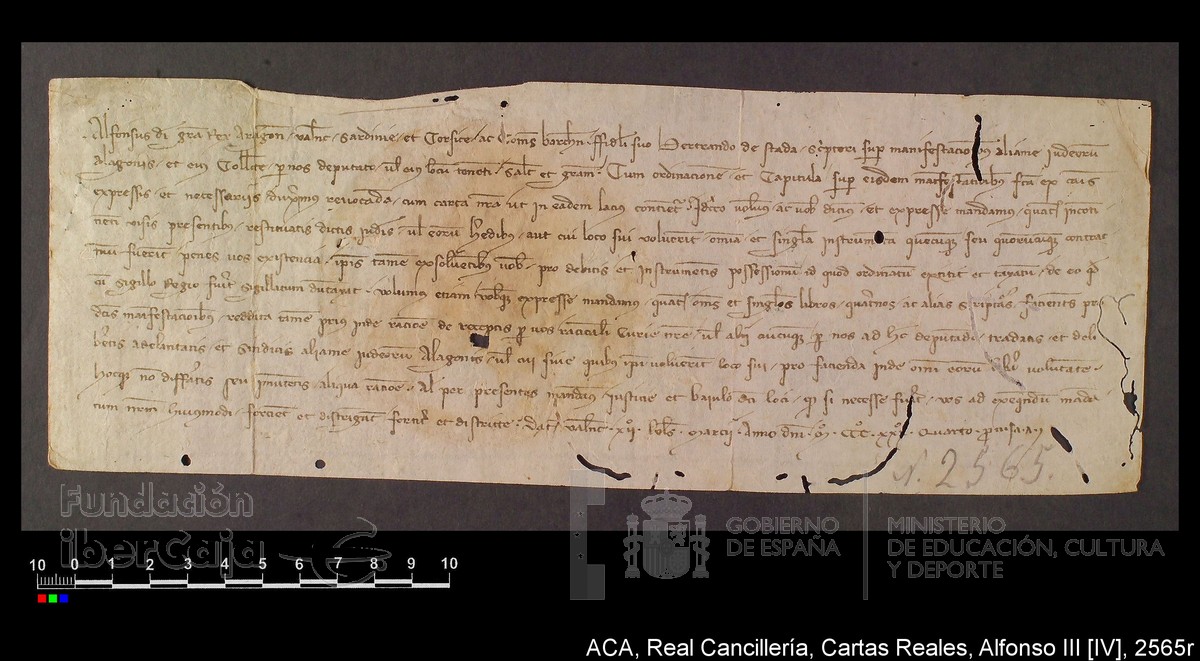 Alfonsus di gra Rex Aragon valnc Sardinie et Corsice ac Comes barchn ffideli suo Bertrando de stada Scriptori sup manifestacionum aliame iudeorum
Alagonis et eius Collecte p nos deputato vl eius locum tenenti Salt et gram Cum ordinacione et Capitula sup eisdem manifestacionibus fca ex causis
expressis et necessariis duxerimus revocanda cum carta nra ut in eadem lacius continetur Idcirco volumus ac vobis dicimus et expresse mandamus quatenus
visis presentibus restituatis dictis iudeis vl eorum heredibus aut cui loco sui voluerint omnia et singula instrumenta quecumque seu quorumcumque
fuerint penes vos existencia ipis tamen exsolventibus vobis pro debitis et Instrumentis possessionum id quod ordinatum extitit et taxatum de eo
Sigillo Regio fuerit Sigillatum dumtaxat volumus etiam vobisque expresse mandamus quatenus omnes et singulos libros quaternos ac alias Scripturas facientes pro
dictis manifestacionibus reddita tamen prius inde racione de receptis p vos racionali Curie nre vl alii cuicumque p nos ad hec deputando tradatis et deli
beretis adelantatis et Sindicis aliame iudeorum Alagonis vl cui sive quibus ipi voluerint loco sui pro facienda inde omni eorum voluntate
hocque no differatis seu inmutetis aliqua racione per presentes mandamus iusticie et baiulo dci loci q si necesse fuerit vos ad exequendum manda
tum nrm huiusmodi forcient et distringant fortiter et districte dat valnc Kls marcii Anno dni M CCC XX quarto
N. 2565.
Fundación
iberCaja
GOBIERNO
DE ESPAÑA
MINISTERIO
DE EDUCACIÓN, CULTURA
Y DEPORTE
10 0 1 2 3 4 5 6 7 8 9 10
ACA, Real Cancillería, Cartas Reales, Alfonso III [IV], 2565r